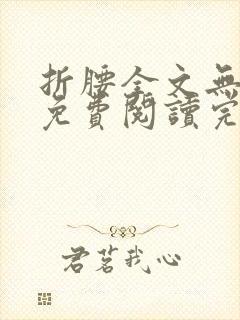 折腰全文無
免費閱讀完
君茗我心